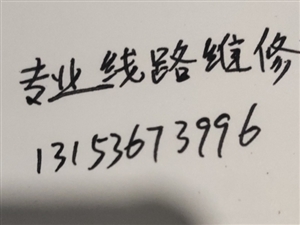 专业线路维修
13153673996